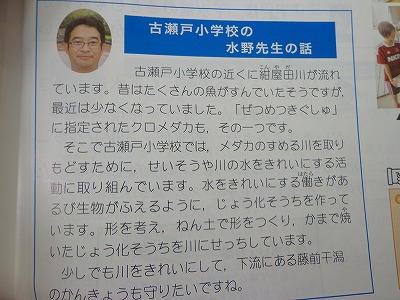 古瀬戸小学校の
水野先生の話
古瀬戸小学校の近くに紺屋田川が流れ
ています。昔はたくさんの魚がすんでいたそうですが、
最近は少なくなっていました。「ぜつめつきぐしゅ」
に指定されたクロメダカも、その一つです。
そこで古瀬戸小学校では、メダカのすめる川を取り
もどすために、せいそうや川の水をきれいにする活
動に取り組んでいます。水をきれいにする働きがあ
るび生物がふえるように、じょう化そうちを作って
います。形を考え、ねん土で形をつくり、かまで焼
いたじょう化そうちを川にせっちしています。
少しでも川をきれいにして、下流にある藤前干潟
のかんきょうも守りたいですね。